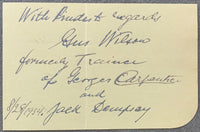 With Kindest regards
Gus Wilson
formerly Trainer
of Georges Carpentier
and
Jack Dempsey
8/28/1934